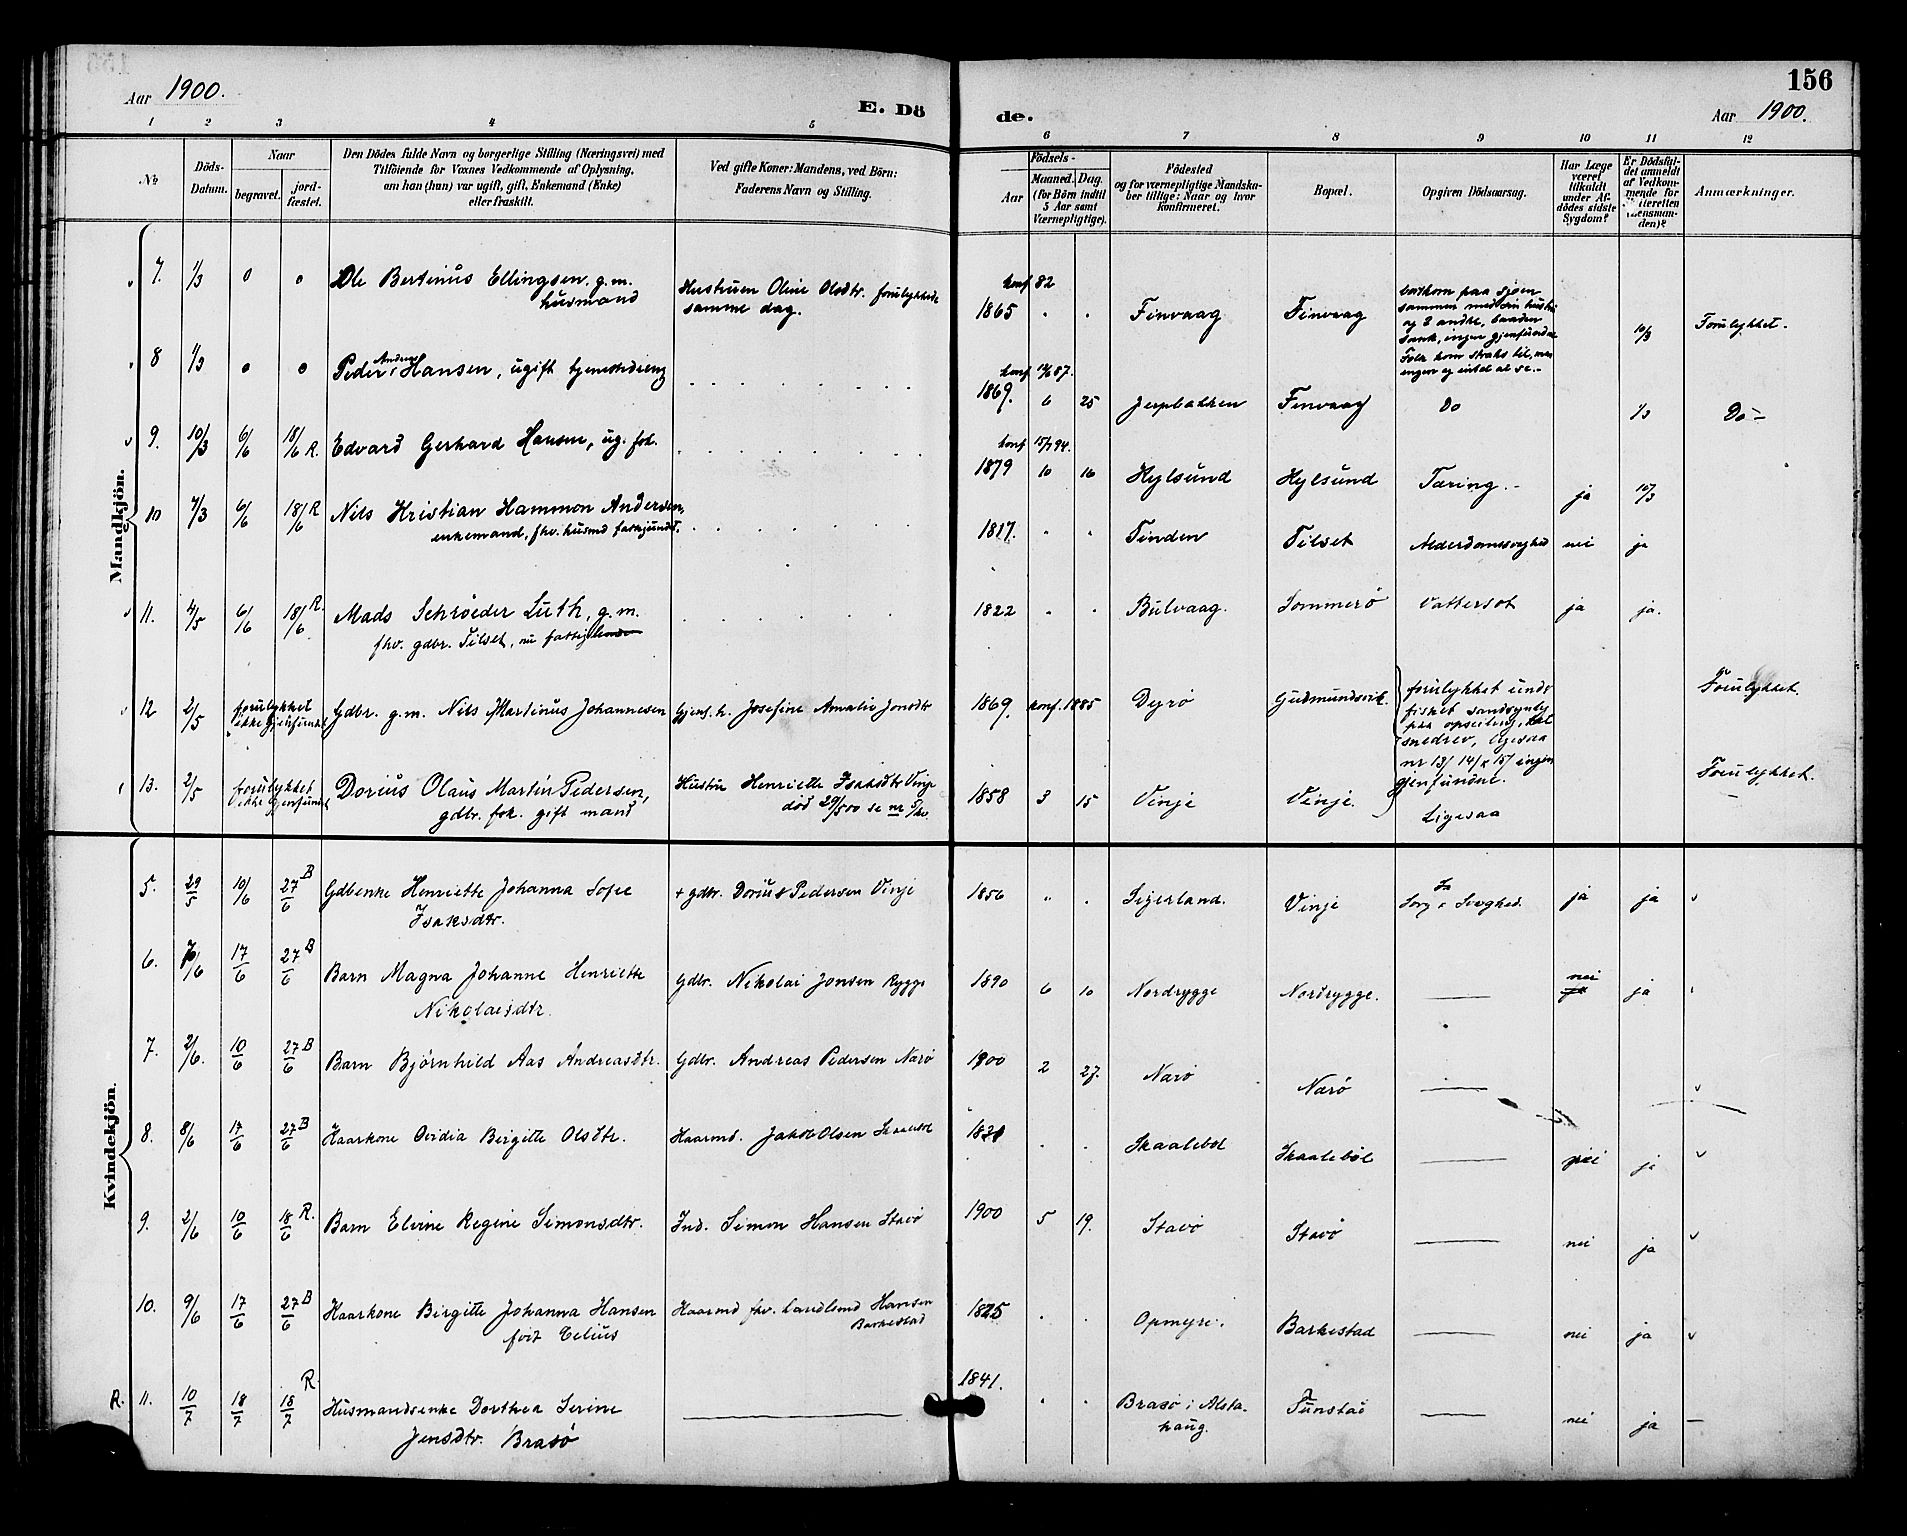 156
Aar 1900.
E. Dö
de.
Aar 1900.
1 2 3 4 5 6 7 8 9 10 11 12
No
Döds-
Datum.
Naar
begravet.
jord-
fæstet.
Den Dödes fulde Navn og borgerlige Stilling (Næringsvei) med
Tilföiende for Voxnes Vedkommende af Oplysning,
om han (hun) var ugift, gift, Enkemand (Enke)
eller fraskilt.
Ved gifte Koner: Mandens, ved Börn:
Faderens Navn og Stilling.
Födsels-
Aar
Maaned. Dag.
(for Börn indtil
5 Aar samt
Værnepligtige).
Födested
og for værnepligtige Mandska-
ber tillige: Naar og hvor
konfirmeret.
Bopæl.
Opgiven Dödsaarsag.
Har Læge
været
tilkaldt
under Af-
dödes sidste
Sygdom?
Er Dödsfal-
det anmeldt
af Vedkom-
mende for
Skifteretten
(Lensman-
den)?
Anmærkninger.
Mandkjön.
7. 1/3 0 0 Ole Bertinus Ellingsen, g.m.
husmand
Hustruen Oline Olsdtr. forulykkede
samme dag.
konf 82
1865 " " Finvaag Finvaag
bortkom paa sjøen
sammen med sin hustru
og 2 andre, baaden
sank, ingen gjenfundne
Folk kom straks til, men
ingen og intet at se.-
10/3 Forulykket.
8 1/3 0 0 Peder Andreas Hansen, ugift tjenestedreng
konf 87.
1869. 6 25 Jerpbakken Finvaag Do 1/3 Do -
9. 10/3 6/6 18/6 R. Edvard Gerhard Hansen, ug. fsk.
konf 15/7 94.
1879 10 16 Hylsund Hylsund Tæring.- ja 10/3
10 7/3 6/6 18/6 R Nils Kristian Hammon Andersen,
enkemand, fhv. husmd
1817. " " Tinden Tilset Alderdomssvaghed nei ja
11. 4/5 6/6 18/6 R. Mads Schrøeder Luth, g.m.
fhv. gdbr. Tilset, nu fattig
1822 " " Bulvaag. Sommerø Vattersot ja ja.
12 2/5 forulykket
ikke gjenfundet
Gdbr. g.m. Nils Martinus Johannesen Gjenf. h. Josefine Amalie Jonsdtr
1869. konf. 1885 Dyrø Gudmundsvik.
forulykket under
fisket sandsynlig
paa opseiling, tæt
snedrev, ligesaa
nr 13/ 14/ & 15/ ingen
gjenfundne.
Forulykket.
13. 2/5 forulykket
ikke gjenfundet
Dorius Olaus Martin Pedersen,
gdbr. fsk. gift mand
Hustru Henriette Isaksdtr Vinje
død 29/5 00 se nr 5/kv.
1858 3 15 Vinje Vinje. Ligesaa Forulykket.
Kvindekjön.
5. 29/5 10/6 27/6 B Gdbenke Henriette Johanna Sofie
Isaksdtr.
+ gdbr. Dorius Pedersen Vinje
1856 " " Sigerland. Vinje Sorg & Svaghed. ja ja v
6. 7/6 17/6 27/6 B Barn Magna Johanne Henriette
Nikolaisdtr.
Gdbr. Nikolai Jonsen Rygge
1890 6 10 Nordrygge Nordrygge. — nei ja
7. 2/6. 10/6 27/6 B Barn Bjørnhild Aas Andreasdtr. Gdbr. Andreas Pedersen Nærø
1900 2 27. Nærø Nærø — v
8. 8/6 17/6 27/6 B Kaarkone Ovidia Birgitte Olsdtr. Kaarmd. Jakob Olsen Skaalebol
1821 " " Skaalebol Skaalebøl — nei ja v
9. 2/6 10/6 18/6 R. Barn Elvine Regine Simonsdtr. Ind. Simon Hansen Stavø
1900 5 19. Stavø Stavø — nei ja v
10. 9/6 17/6 27/6 B Kaarkone Birgitte Johanna Hansen
født Celius
Kaarmd fhv. Hansen
Barkestad
1825 " " Opmyre. Barkestad — nei ja v
R. 11. 10/7 18/7 18/7 R. Husmandsenke Dorthea Serine
Jensdtr. Brasø
—
1841. " " Brasø i Alsta-
haug.
Tunstad — nei ja —